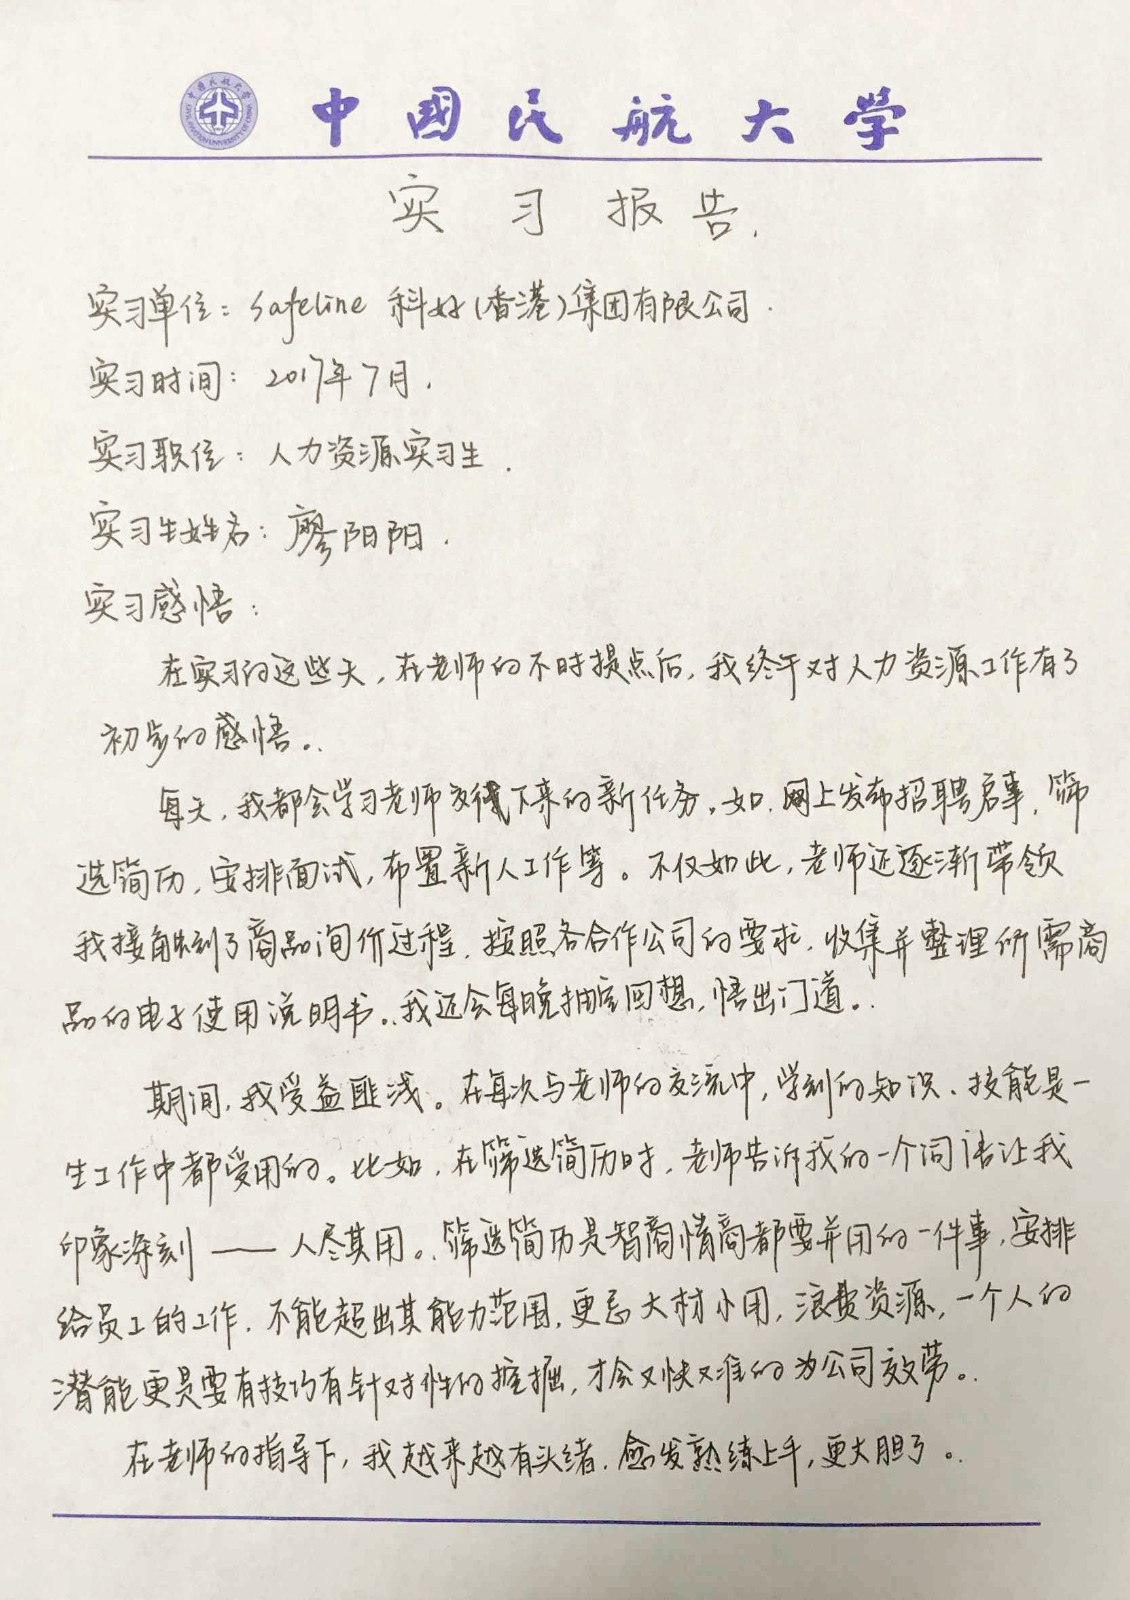 中國民航大学
实习报告.
实习单位：Safeline 科好（香港）集团有限公司.
实习时间：2017年7月.
实习职位：人力资源实习生.
实习生姓名：廖阳阳.
实习感悟：
在实习的这些天，在老师的不时提点后，我终于对人力资源工作有了
初步的感悟。
每天，我都会学习老师交代下来的新任务。如，网上发布招聘启事，筛
选简历，安排面试，布置新人工作等。不仅如此，老师还逐渐带领
我接触到了商品询价过程，按照各合作公司的要求，收集并整理所需商
品的电子使用说明书。我还会每晚捕捉回想，悟出门道。
期间，我受益匪浅。在每次与老师的交流中，学到的知识、技能是一
生工作中都受用的。比如，在筛选简历时，老师告诉我的一个词语让我
印象深刻——人尽其用。筛选简历是智商情商都要并用的一件事，安排
给员工的工作，不能超出其能力范围，更忌大材小用，浪费资源，一个人的
潜能更是要有技巧有针对性的挖掘，才会又快又准的为公司效劳。
在老师的指导下，我越来越有头绪，愈发熟练上手，更大胆了。